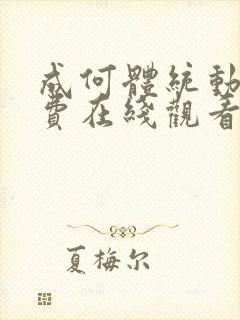 成何體統動
費在綫觀看
夏梅尔